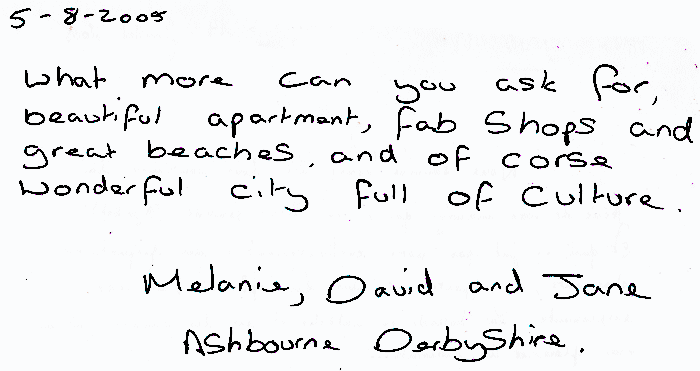 5-8-2005
What more can you ask for,
beautiful apartment, fab Shops and
great beaches, and of corse
wonderful city full of Culture.
Melanie, David and Jane
Ashbourne DerbyShire.